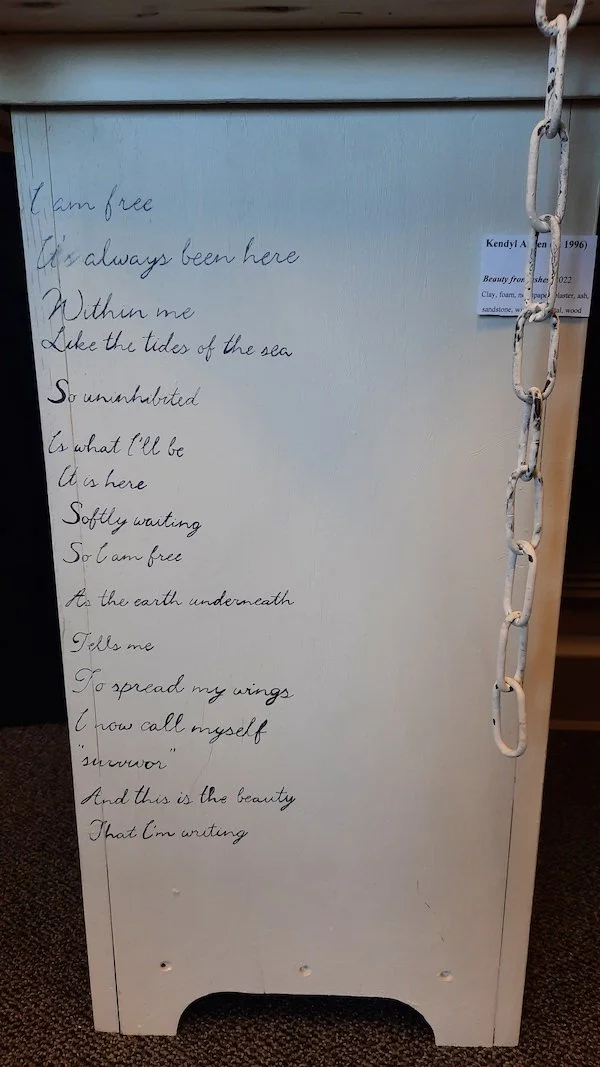 I am free
It's always been here
Within me
Like the tides of the sea
So uninhibited
Is what I'll be
It is here
Softly waiting
So I am free
As the earth underneath
Tells me
To spread my wings
I now call myself
"survivor"
And this is the beauty
That I'm writing
Kendyl 1996)
Beauty from Ashes 2022
Clay, foam, newspaper, plaster, ash,
sandstone, wood